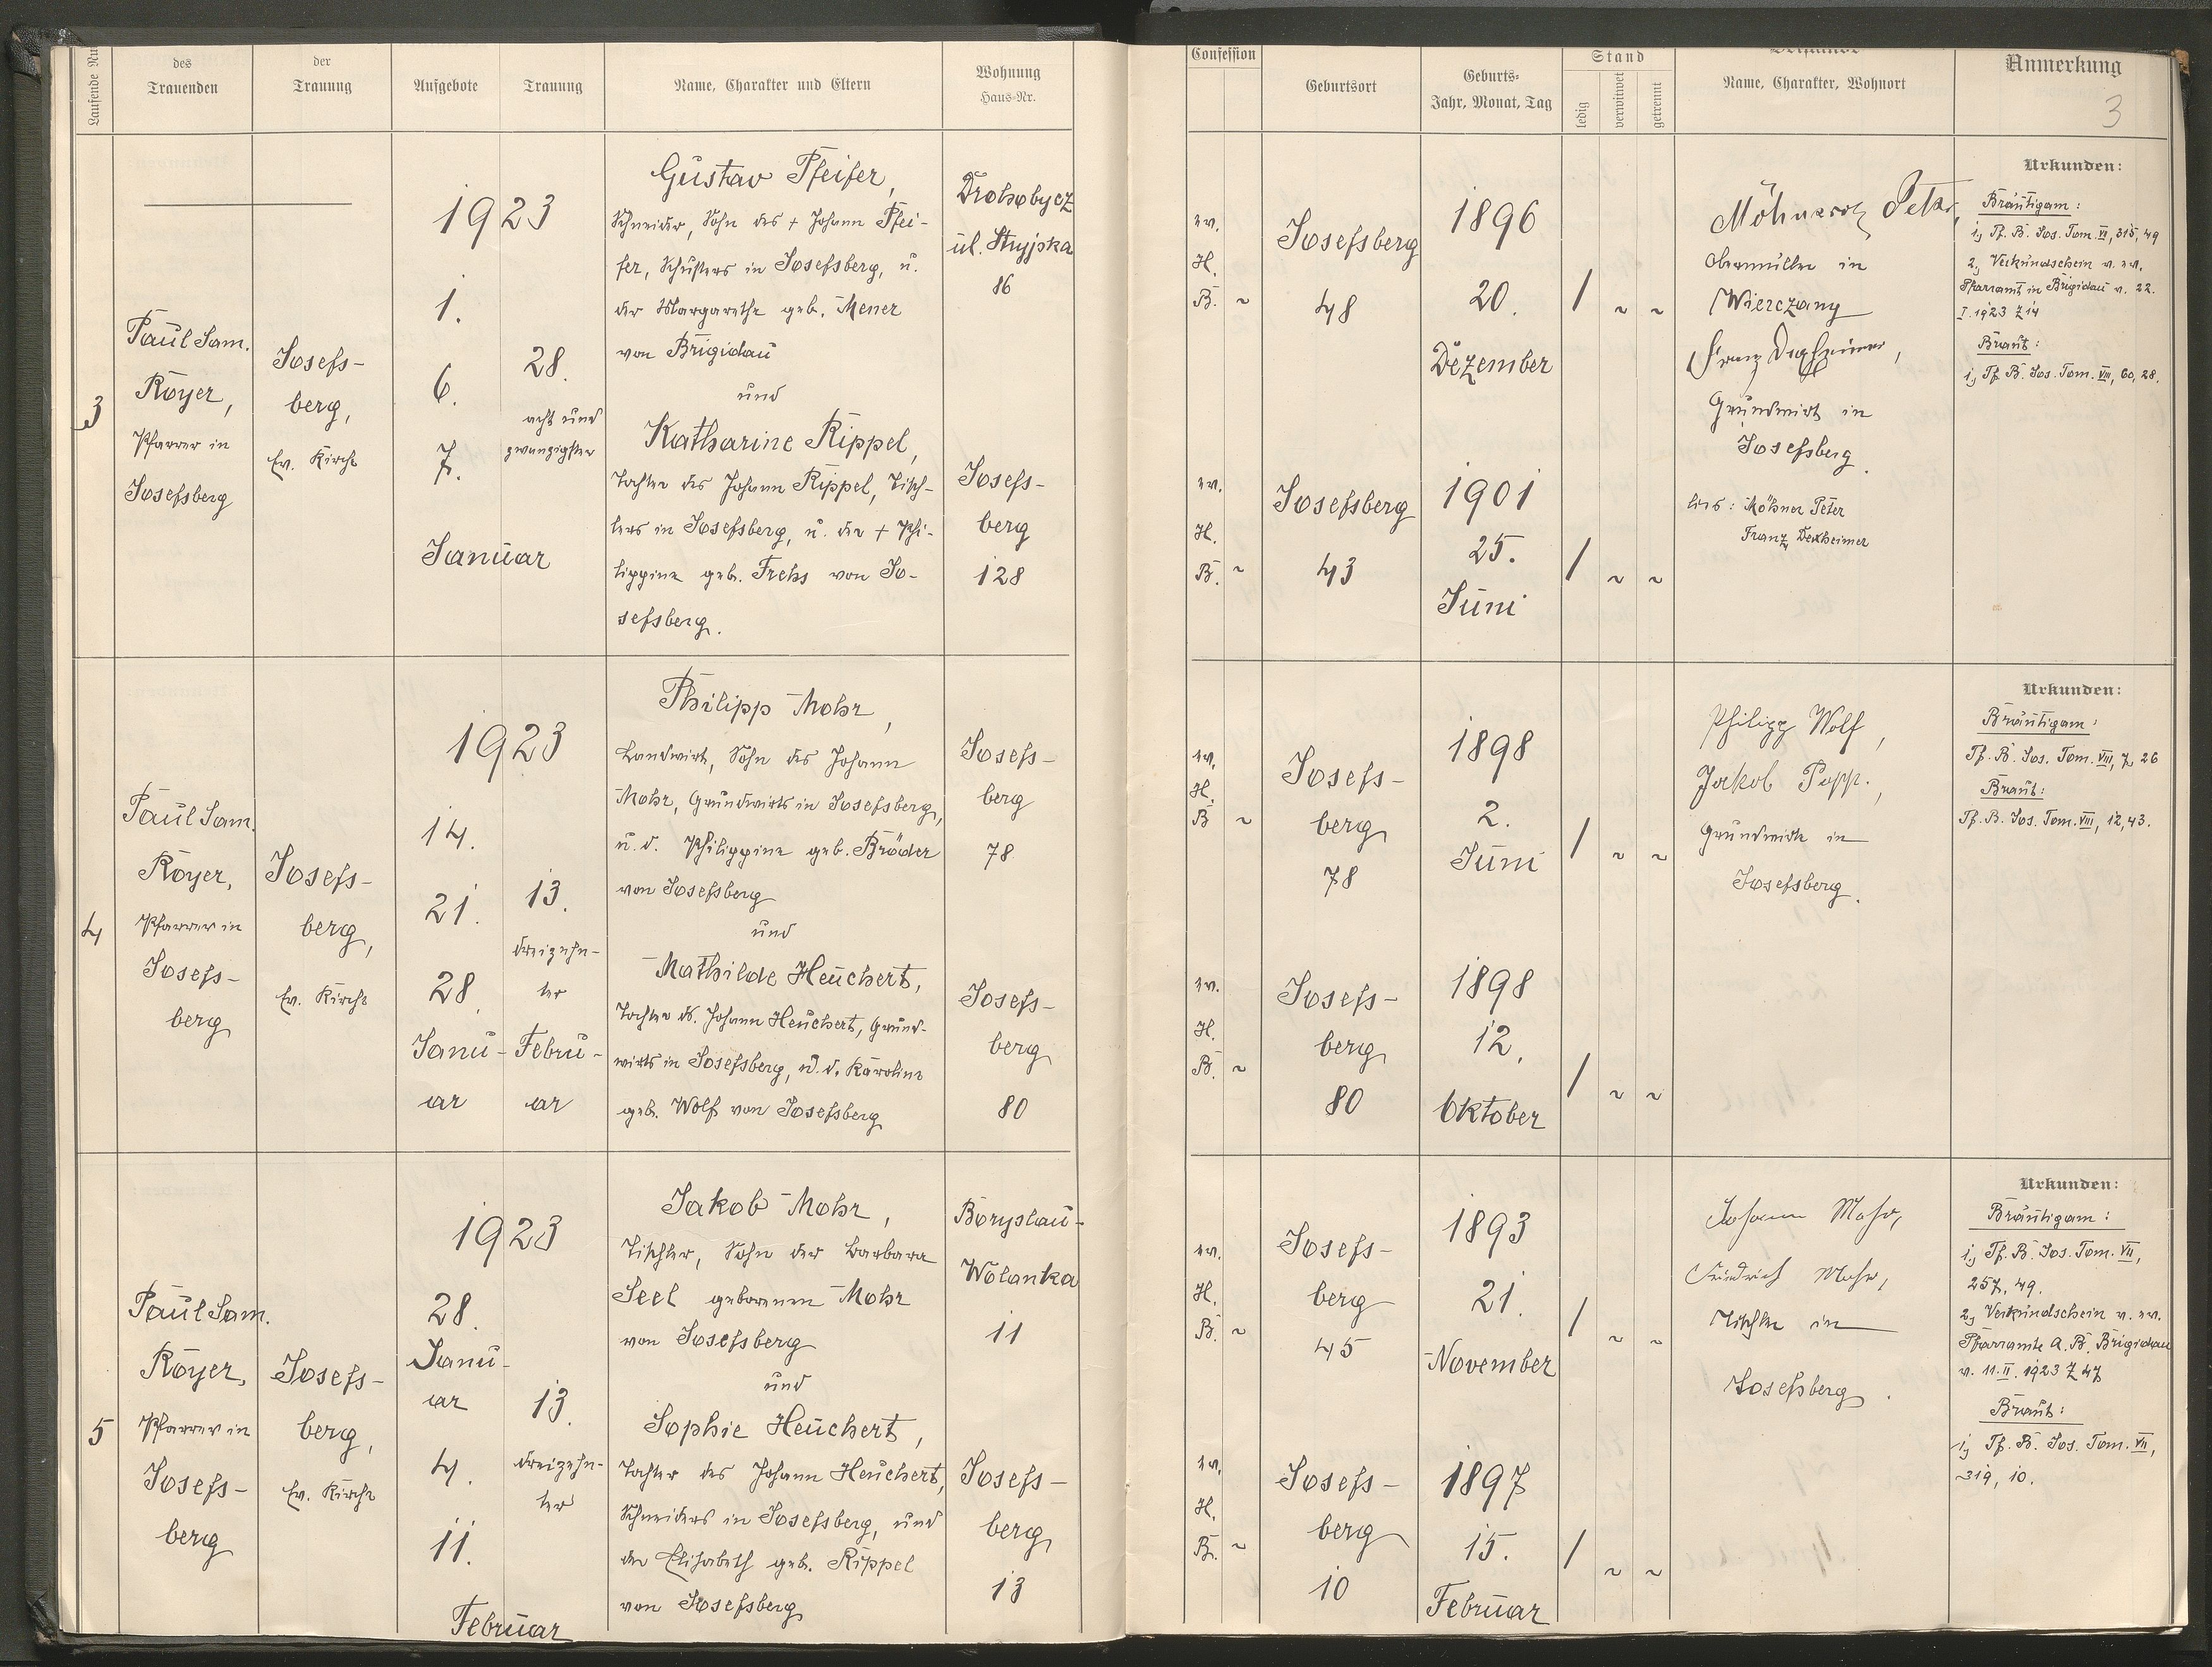 Laufende Nu
des
Trauenden
der
Trauung
Aufgebote
Trauung
Name, Charakter und Eltern
Wohnung
Haus-Nr.
Confession
Geburtsort
Geburts-
Jahr, Monat, Tag
Stand
ledig
verwitwet
getrennt
Name, Charakter, Wohnort
Anmerkung
3
3
Paul Sam.
Royer,
Pfarrer in
Josefsberg
Josefs-
berg,
Ev. Kirche
1923
1.
6.
7.
Januar
28.
acht und
zwanzigster
Gustav Pfeifer,
Schneider, Sohn des + Johann Pfei-
fer, Schusters in Josefsberg, u.
der Margarethe geb. Mener
von Brigidau
und
Katharine Rippel,
Tochter des Johann Rippel, Tisch-
lers in Josefsberg, u. der + Phi-
lippine geb. Frehs von Jo-
sefsberg.
Drohobycz
ul. Stryjska
86
Josefs-
berg
128
ev.
H.
B. ~
Josefsberg
48
1896
20.
Dezember
/ ~ ~
ev.
H.
B. ~
Josefsberg
43
1901
25.
Juni
/ ~ ~
Petr,
Obermüller in
Wierczany
Franz
Grundwirt in
Josefsberg.
lies: Möhner Peter
Franz Dexheimer
Urkunden:
Bräutigam:
1, Tf. B. Jos. Tom. VI, 315, 49
2, Verkündschein v. ev.
Pfarramt in Brigidau v. 22.
I. 1923 Z 14
Braut:
1, Tf. B. Jos. Tom. VIII, 60, 28.
4
Paul Sam.
Royer,
Pfarrer in
Josefs-
berg
Josefs-
berg,
Ev. Kirche
1923
14.
21.
28.
Janu-
ar
13.
dreizehn-
ter
Febru-
ar
Philipp Mohr,
Landwirt, Sohn des Johann
Mohr, Grundwirts in Josefsberg,
u. d. Philippine geb. Bröder
von Josefsberg
und
Mathilde Heuchert,
Tochter ds. Johann Heuchert, Grund-
wirts in Josefsberg, u. d. Karoline
geb. Wolf von Josefsberg
Josefs-
berg
78
Josefs-
berg
80
ev.
H.
B ~
Josefs-
berg
78
1898
2.
Juni
/ ~ ~
ev.
H.
B. ~
Josefs-
berg
80
1898
12.
Oktober
/ ~ ~
Philipp Wolf,
Jakob Popp.,
Grundwirte in
Josefsberg.
Urkunden:
Bräutigam:
Tf. B. Jos. Tom. VIII, 7, 26
Braut:
Tf. B. Jos. Tom. VIII, 12, 43.
5
Paul Sam.
Royer,
Pfarrer in
Josefs-
berg
Josefs-
berg,
Ev. Kirche
1923
28.
Janu-
ar
4.
11.
Februar
13.
dreizehn-
ter
Jakob Mohr,
Tischler, Sohn der Barbara
Seel geborenen Mohr
von Josefsberg
und
Sophie Heuchert,
Tochter des Johann Heuchert,
Schneiders in Josefsberg, und
der Elisabeth geb. Rippel
von Josefsberg
Boryslau-
Wolanka
11
Josefs-
berg
13
ev.
H.
B. ~
Josefs-
berg
45
1893
21.
November
/ ~ ~
ev.
H.
B. ~
Josefs-
berg
10
1897
15.
Februar
/ ~ ~
Johann Mohr,
Friedrich Mohr,
Tischler in
Josefsberg.
Urkunden:
Bräutigam:
1, Tf. B. Jos. Tom. VII,
257, 49.
2, Verkündschein v. ev.
Pfarramte A. B. Brigidau
v. 11. II. 1923 Z 47
Braut:
1, Tf. B. Jos. Tom. VII,
319, 10.